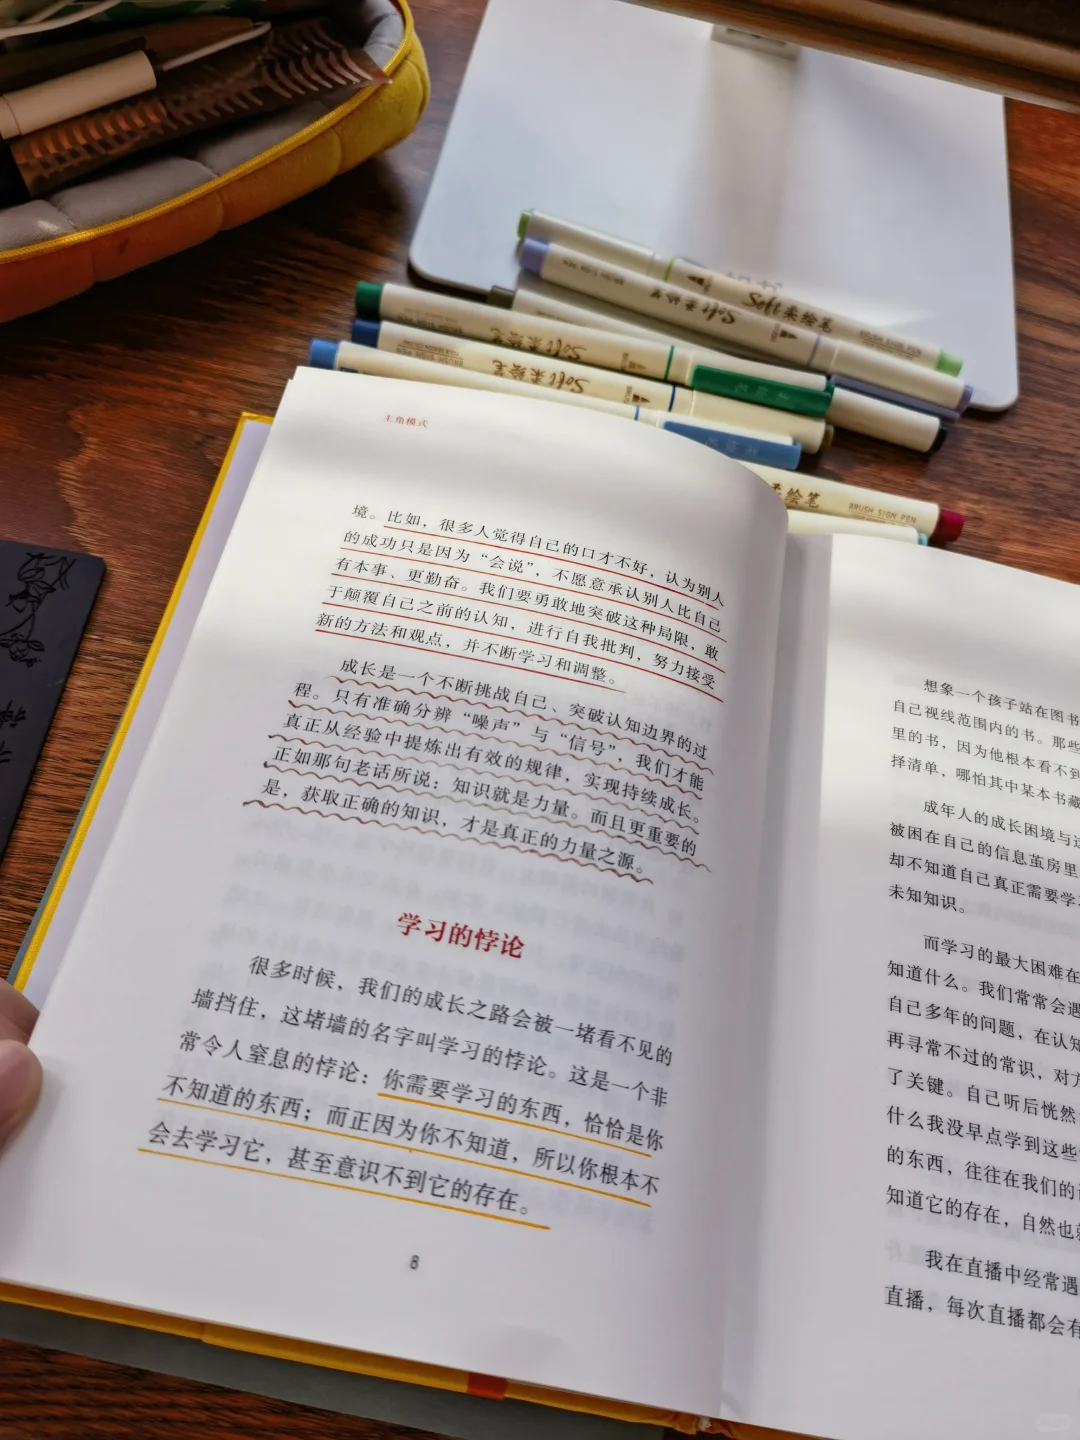 Soft柔绘笔
Soft柔绘笔
Soft柔绘笔
BRUSH SIGN PEN
Soft柔绘笔
绘笔
BRUSH SIGN PEN
主角模式
境。比如，很多人觉得自己的口才不好，认为别人
的成功只是因为“会说”，不愿意承认别人比自己
有本事、更勤奋。我们要勇敢地突破这种局限，敢
于颠覆自己之前的认知，进行自我批判，努力接受
新的方法和观点，并不断学习和调整。
成长是一个不断挑战自己、突破认知边界的过
程。只有准确分辨“噪声”与“信号”，我们才能
真正从经验中提炼出有效的规律，实现持续成长。
正如那句老话所说：知识就是力量。而且更重要的
是，获取正确的知识，才是真正的力量之源。
学习的悖论
很多时候，我们的成长之路会被一堵看不见的
墙挡住，这堵墙的名字叫学习的悖论。这是一个非
常令人窒息的悖论：你需要学习的东西，恰恰是你
不知道的东西；而正因为你不知道，所以你根本不
会去学习它，甚至意识不到它的存在。
8
想象一个孩子站在图书
自己视线范围内的书。那些
里的书，因为他根本看不到
择清单，哪怕其中某本书藏
成年人的成长困境与这
被困在自己的信息茧房里
却不知道自己真正需要学习
未知知识。
而学习的最大困难在
知道什么。我们常常会遇
自己多年的问题，在认知
再寻常不过的常识，对方
了关键。自己听后恍然
什么我没早点学到这些
的东西，往往在我们的
知道它的存在，自然也就
我在直播中经常遇
直播，每次直播都会有